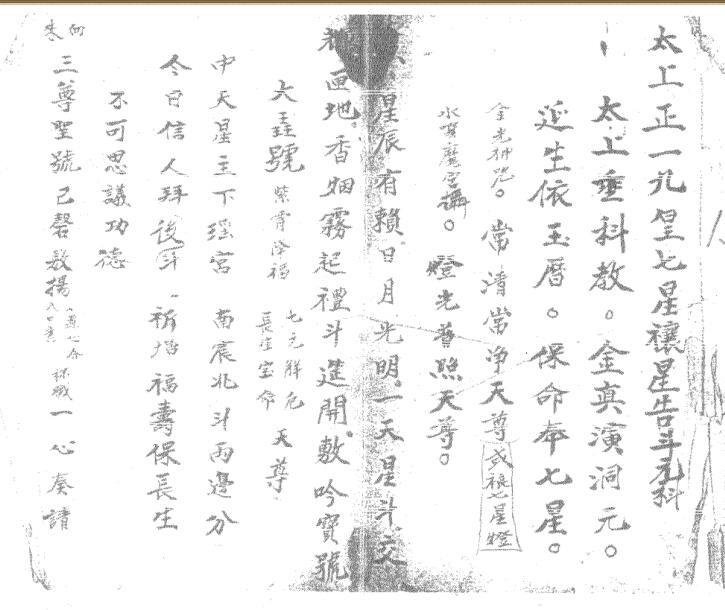 太上正一礼星七星禳星告斗元科
太上垂科教。金真演洞元。
延生依玉曆。保命奉七星。
常清常净天尊 或禳七星燈
金光神咒。
燈光普照天尊。
星辰有賴日月光明一天星斗交
匝地香烟霧起禮斗筵開敷吟寳號
大聖號 紫霄降福 七元解厄 長生宝命 天尊
中天星主下瑶宮 南宸北斗兩邊分
今日信人拜後斗 祈增福壽保長生
不可思議功德
三尊聖號已罄敷揚 一心奏請